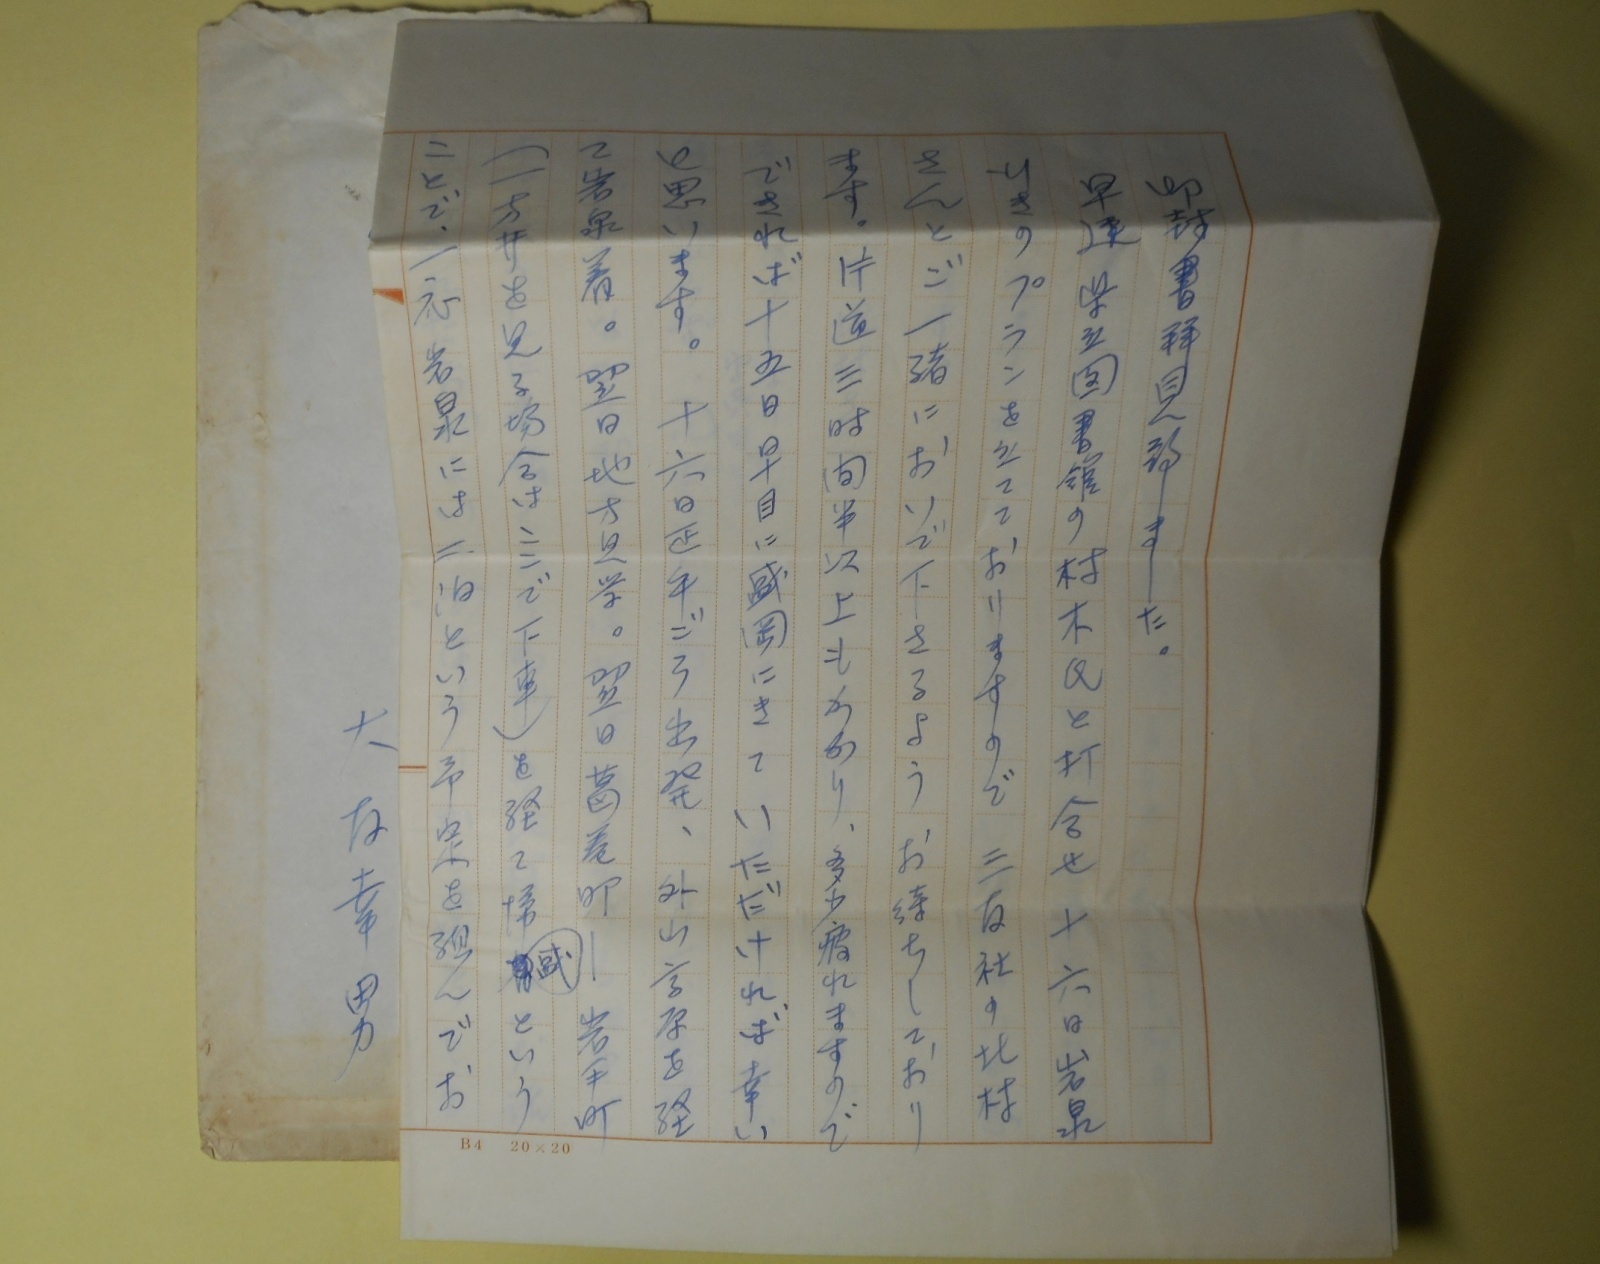 御封書拝見致しました。
早速県立図書館の村木氏と打合せ十六日岩泉
ゆきのプランを立てておりますので三友社の北村
さんとご一緒においで下さるようお待ちしており
ます。片道三時間半以上もかかり、多少疲れますので
できれば十五日早目に盛岡にきていただければ幸い
と思います。十六日正午ごろ出発、外山高原を経
て岩泉着。翌日地方見学。翌日葛巻町ー岩手町
(一方井を見る場合はここで下車)を経て帰盛という
ことで、一応岩泉には二泊という予定を組んでお
B4 20×20
大友幸男